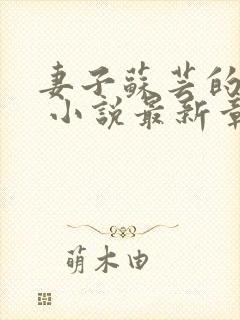 妻子蘇芸的
小說最新章
萌木由